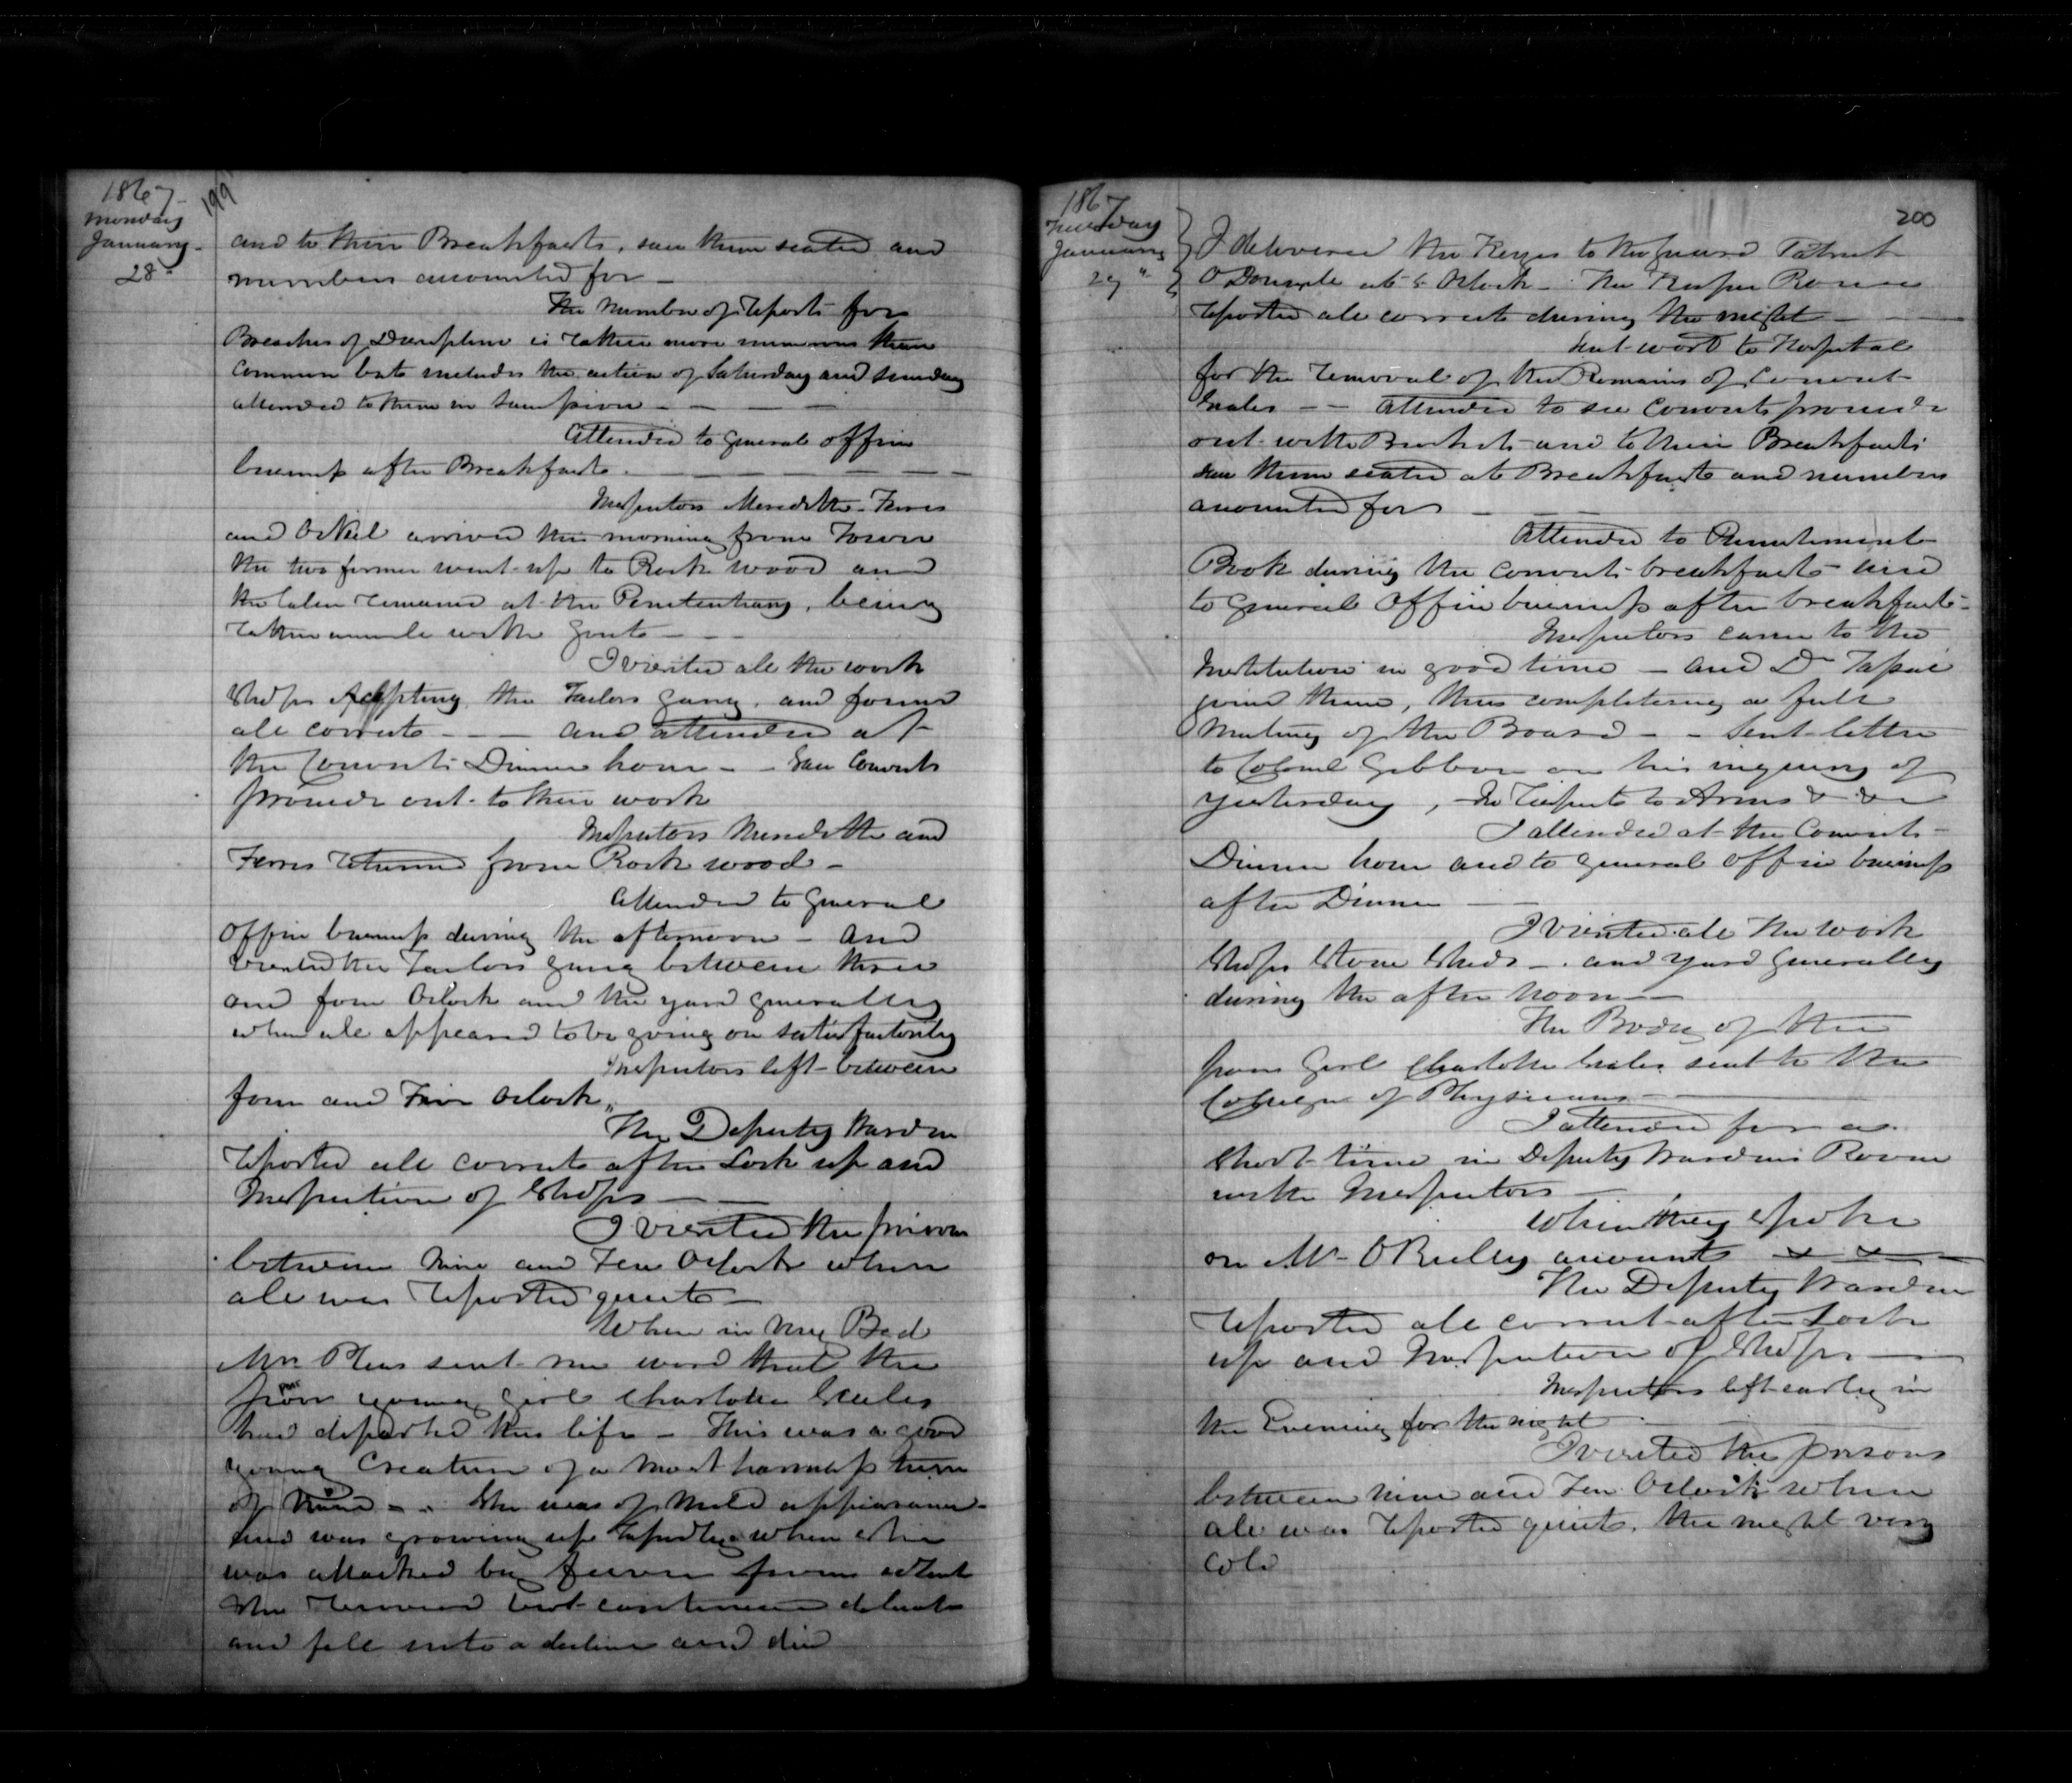 1867
199
Monday
January
28"
and to their Breakfasts, saw them seated and
numbers accounted for
The number of reports for
Breaches of Discipline is rather more numerous than
Common but includes the action of Saturday and Sunday
attended to them in
Attended to general office
business after Breakfast
Inspectors Meredith Ferres
and O'Neil arrived this morning from Town
the two former went up to Rockwood and
the latter remained at the Penitentiary, being
rather unwell with gout
I visited all the work
Shops excepting the Tailors gang, and found
all correct and attended at
the Convicts Dinner hour - Saw Convicts
proceed out to their work
Inspectors Meredith and
Ferres returned from Rockwood
Attended to general
office business during the afternoon - and
visited the Tailors gang between three
and four Oclock and the yard generally
when all appeared to be going on satisfactorily
Inspectors left between
four and Five Oclock
The Deputy Warden
reported all correct after Lock up and
Inspection of Shops
I visited the prison
between nine and Ten Oclock when
all was reported quiet
When in my Bed
Mrs Plees sent me word that the
poor young girl Charlotte
had departed this life - This was a good
young Creature of a most harmless turn
of mind - She was of mild appearance
and was growing up rapidly when she
was attacked by fever from which
she recovered but continued delicate
and fell into a decline and died
1867
200
Tuesday
January
29"
I delivered the Keys to the guard Patrick
O'Donnell at 6 Oclock - The Keeper
reported all correct during the night
Sent word to Hospital
for the removal of the Remains of Convict
Attended to see Convicts proceed
out with Buckets and to their Breakfasts
saw them seated at Breakfast and numbers
accounted for
Attended to Punishment
Book during the convicts breakfast and
to general office business after breakfast
Inspectors came to the
Institution in good time - and Dr Taché
joined them, thus completing a full
Meeting of the Board - Sent letter
to Colonel Gibbon on his inquiry of
yesterday, in respect to Arms &c &c
I attended at the Convicts
Dinner hour and to general office business
after Dinner
I visited all the work
Shops Stone Sheds - and yard generally
during the after noon
The Body of the
poor Girl Charlotte sent to the
College of Physicians
I attended for a
short time in Deputy Wardens Room
with Inspectors
When they spoke
on Mr O'Reilly accounts
The Deputy Warden
reported all correct after Lock
up and Inspection of Shops
Inspectors left early in
the Evening for the night
I visited the prisons
between nine and Ten Oclock when
all was reported quiet. the night very
cold